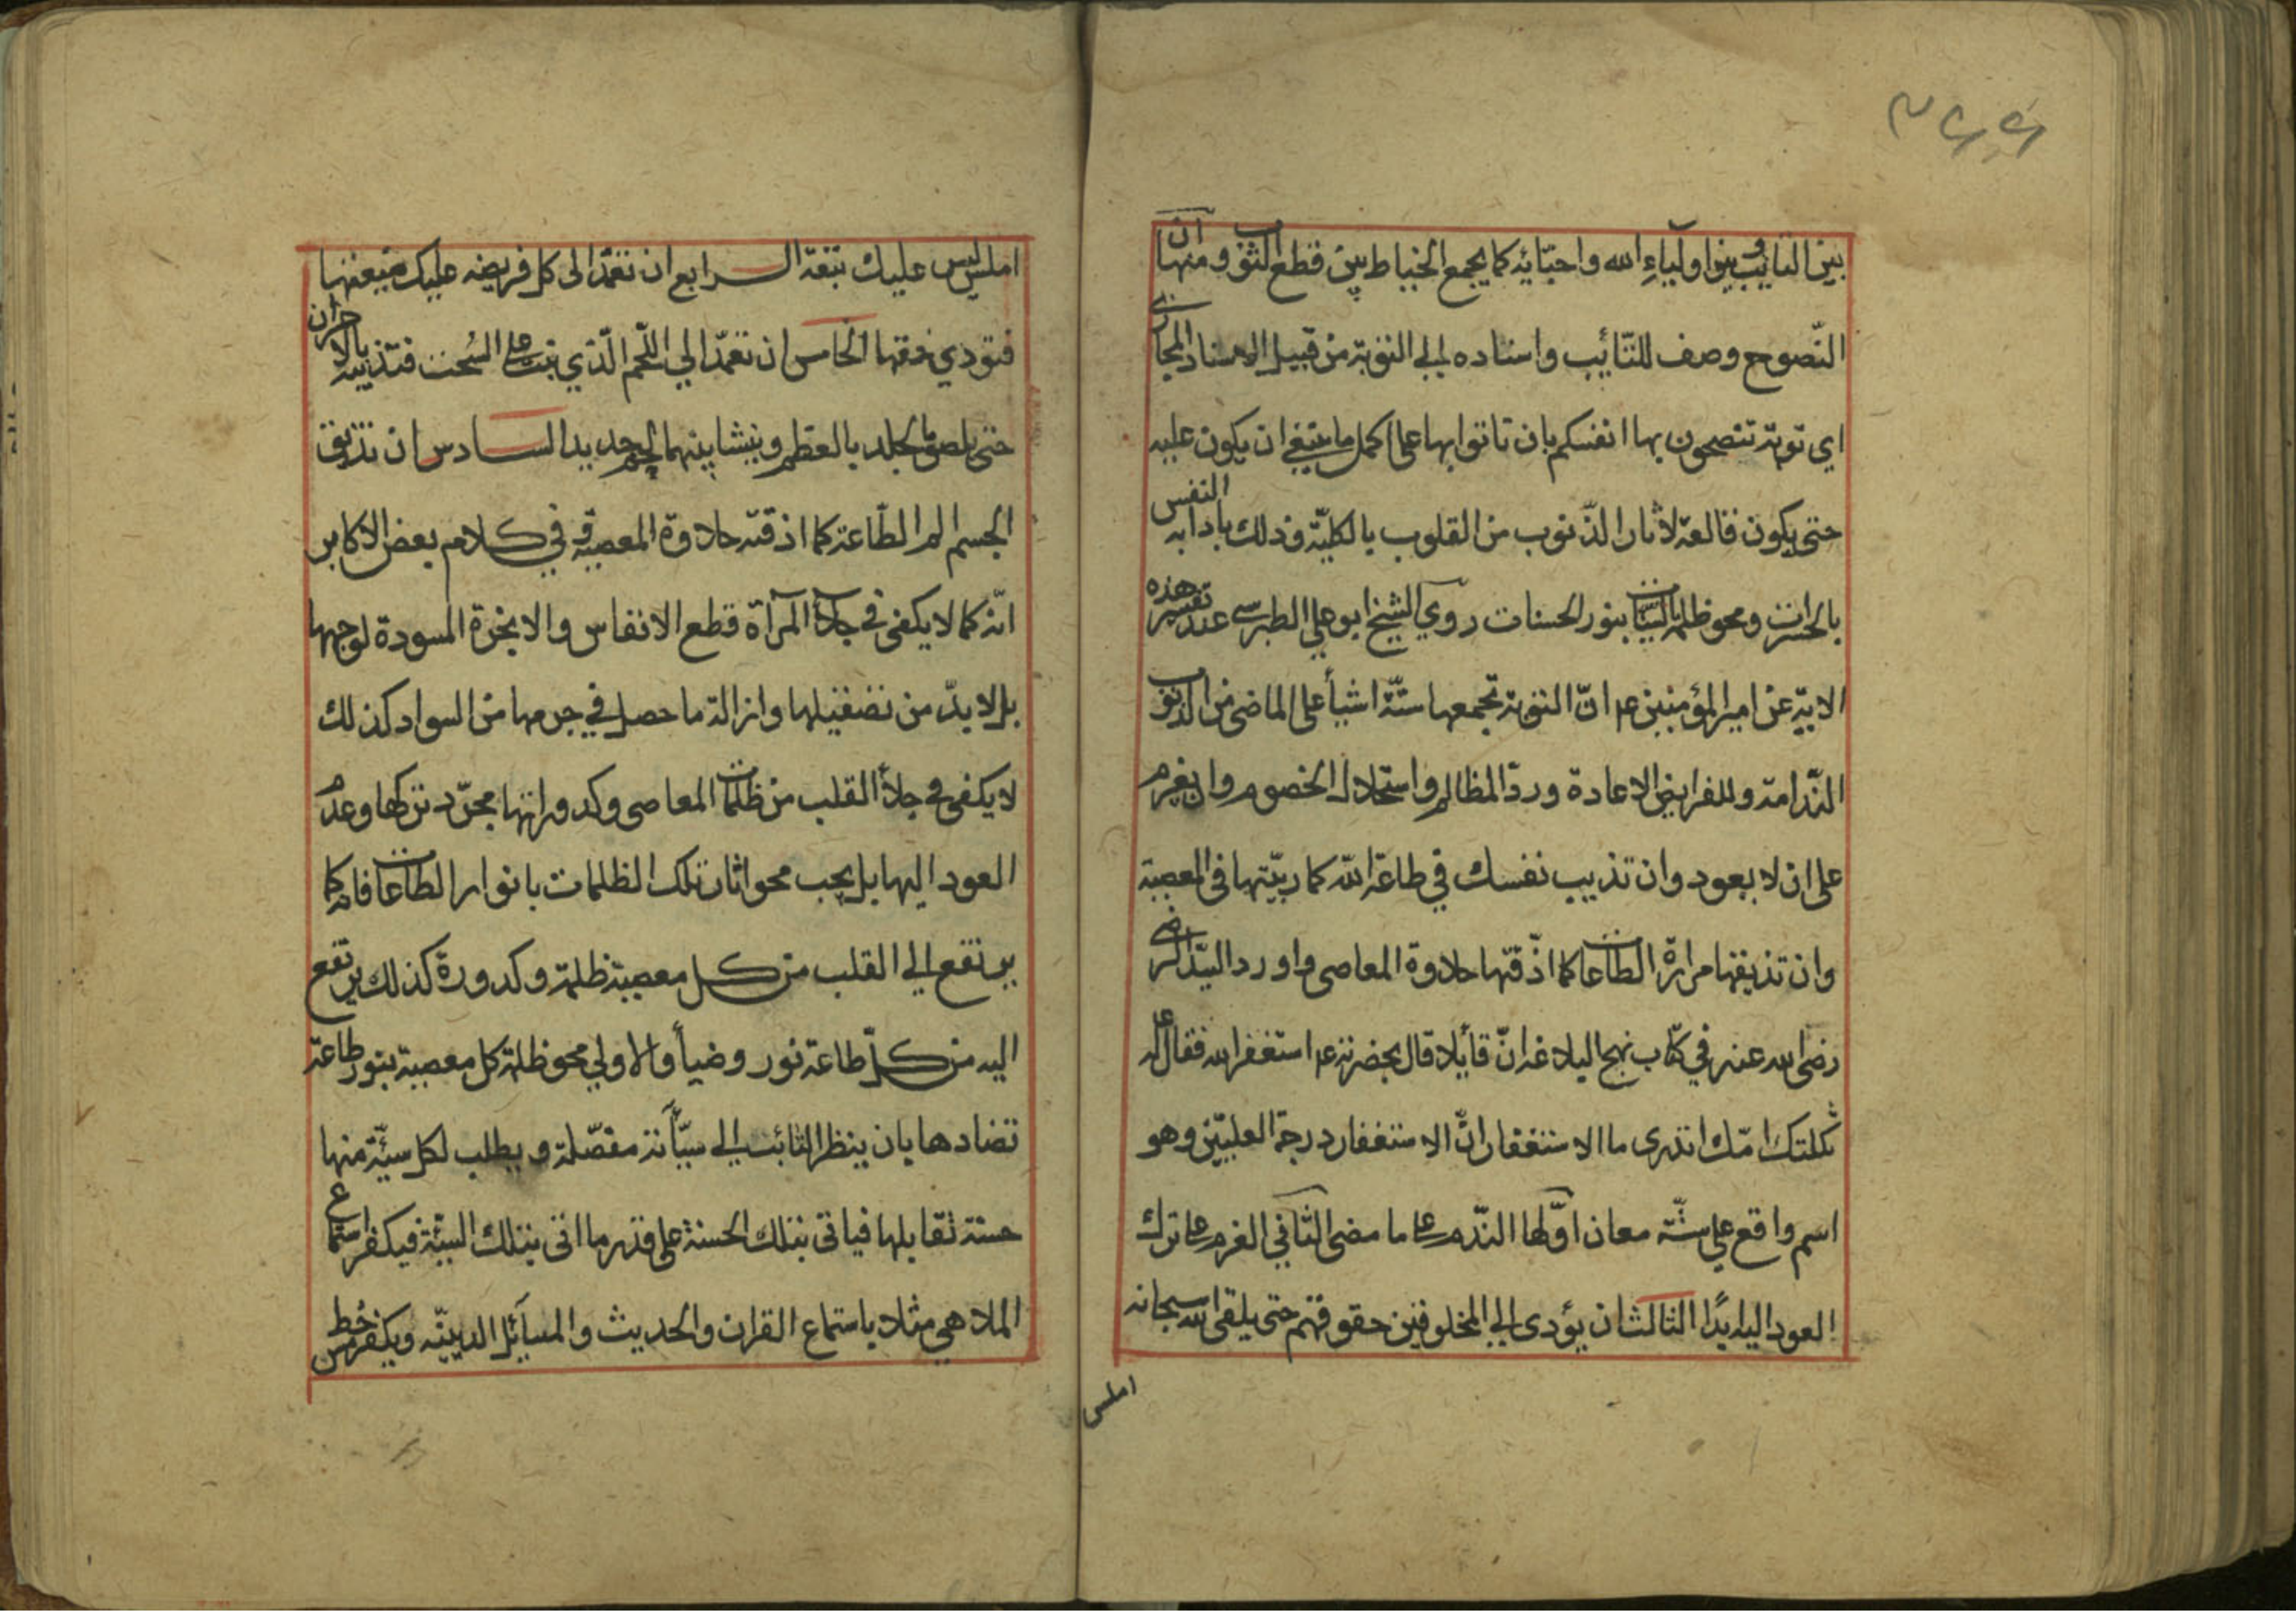 بين التايب وبين اولياء الله واحبّائه كما يجمع الخياط بين قطع الثوب ومنها ان
النّصوح وصف للتّائب واسناده الي التوبة من قبيل الاسناد المجازي
اي توبة تنصحون بها انفسكم بان تاتوا بها على اكمل ما ينبغي ان يكون عليه
حتى يكون قالعة لاثار الذّنوب من القلوب بالكليّة وذلك باذابه النفس
بالحسرات ومحو ظلمة السّيّات بنور الحسنات روي الشيخ ابو علي الطبرسي عند تفسير هذه
الايّة عن امير المؤمنين عم انّ التوبة تجمعها ستّة اشيأ على الماضى من الذنوب
النّدامة وللفرايض الاعادة وردّ المظالم واستحلال الخصوم وان يغرم
على ان لا يعود وان تذيب نفسك في طاعة الله كما ربّيتها في المعصية
وان تذيقها مرارة الطّاعات كما اذّقتها حلاوة المعاصى واورد السيّد الرضي
رضى الله عنه في كتاب نهج البلاغة انّ قائلا قال بحضرته عم استغفر الله فقال له
ثكلتك امّك اتدرى ما الاستغفار انّ الاستغفار درجة العليّين وهو
اسم واقع علي ستّة معان اوّلها النّدم على ما مضى الثّاني الغرم على ترك
العود اليه ابدًا الثالث ان يؤدى الي المخلوقين حقوقهم حتى يلقى الله سبحانه
املس
املس ليس عليك تبعة الرابع ان تعمدّ الى كل فريضه عليك ضيعتها
فتودي حقها الخامس ان تعمدّ الي اللّحم الّذي نبت على السّحت فتذيبه بالاحزان
حتى يلصق الجلد بالعظم وينشا بينهما لحم جديد السادس ان تذيق
الجسم الم الطّاعة كما اذقته حلاوة المعصية وفي كلام بعض الاكابر
انّه كما لا يكفى في جلاء المرآة قطع الانفاس والابخرة المسودة لوجهها
بل لا بدّ من تصقيلها وازالة ما حصل في جرمها من السواد كذلك
لا يكفى في جلاء القلب من ظلمات المعاصى وكدوراتها مجرّد تركها وعدم
العود اليها بل يجب محو اثار تلك الظلمات بانوار الطّاعات فانه كما
يرتفع الي القلب من كل معصية ظلمة وكدورة كذلك يرتفع
اليه من كلّ طاعة نور وضيأ والاولي محو ظلمة كل معصية بنور طاعة
تضادها بان ينظر التائب الي سيّآته مفصّلة ويطلب لكل سيئّة منها
حسنة تقابلها فياتى بتلك الحسنة على قدر ما اتى بتلك السيّة فيكفر استماع
الملاهي مثلا باستماع القران والحديث والمسآئل الدينيّه ويكفر مس خط